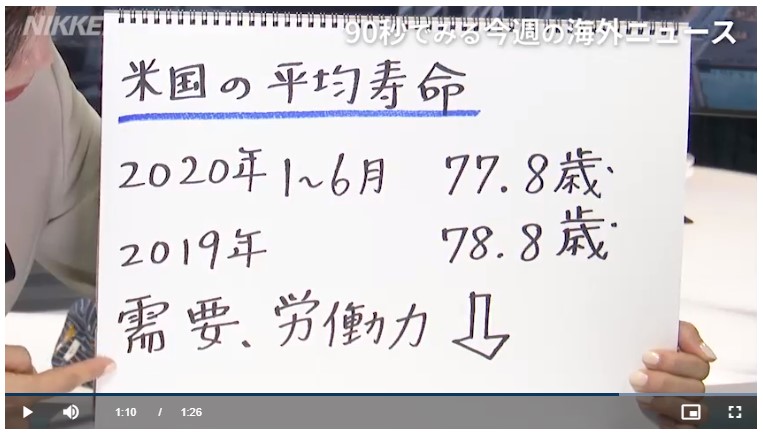 NIKKE
90秒でみる今週の海外ニュース
米国の平均寿命
2020年1~6月 77.8歳
2019年 78.8歳
需要、労働力⇩
1:10 / 1:26